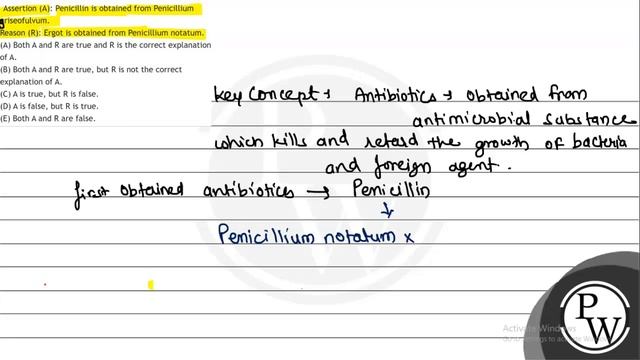 Assertion (A): Penicillin is obtained from Penicillium
griseofulvum.
Reason (R): Ergot is obtained from Penicillium notatum.
(A) Both A and R are true and R is the correct explanation
of A.
(B) Both A and R are true, but R is not the correct
explanation of A.
(C) A is true, but R is false.
(D) A is false, but R is true.
(E) Both A and R are false.
Key Concept → Antibiotics → obtained from
antimicrobial substance
which kills and retard the growth of bacteria
and foreign agent.
first obtained antibiotics → Penicillin
↓
Penicillium notatum x
P
W
Activate Windows
Go to Settings to activate Windows